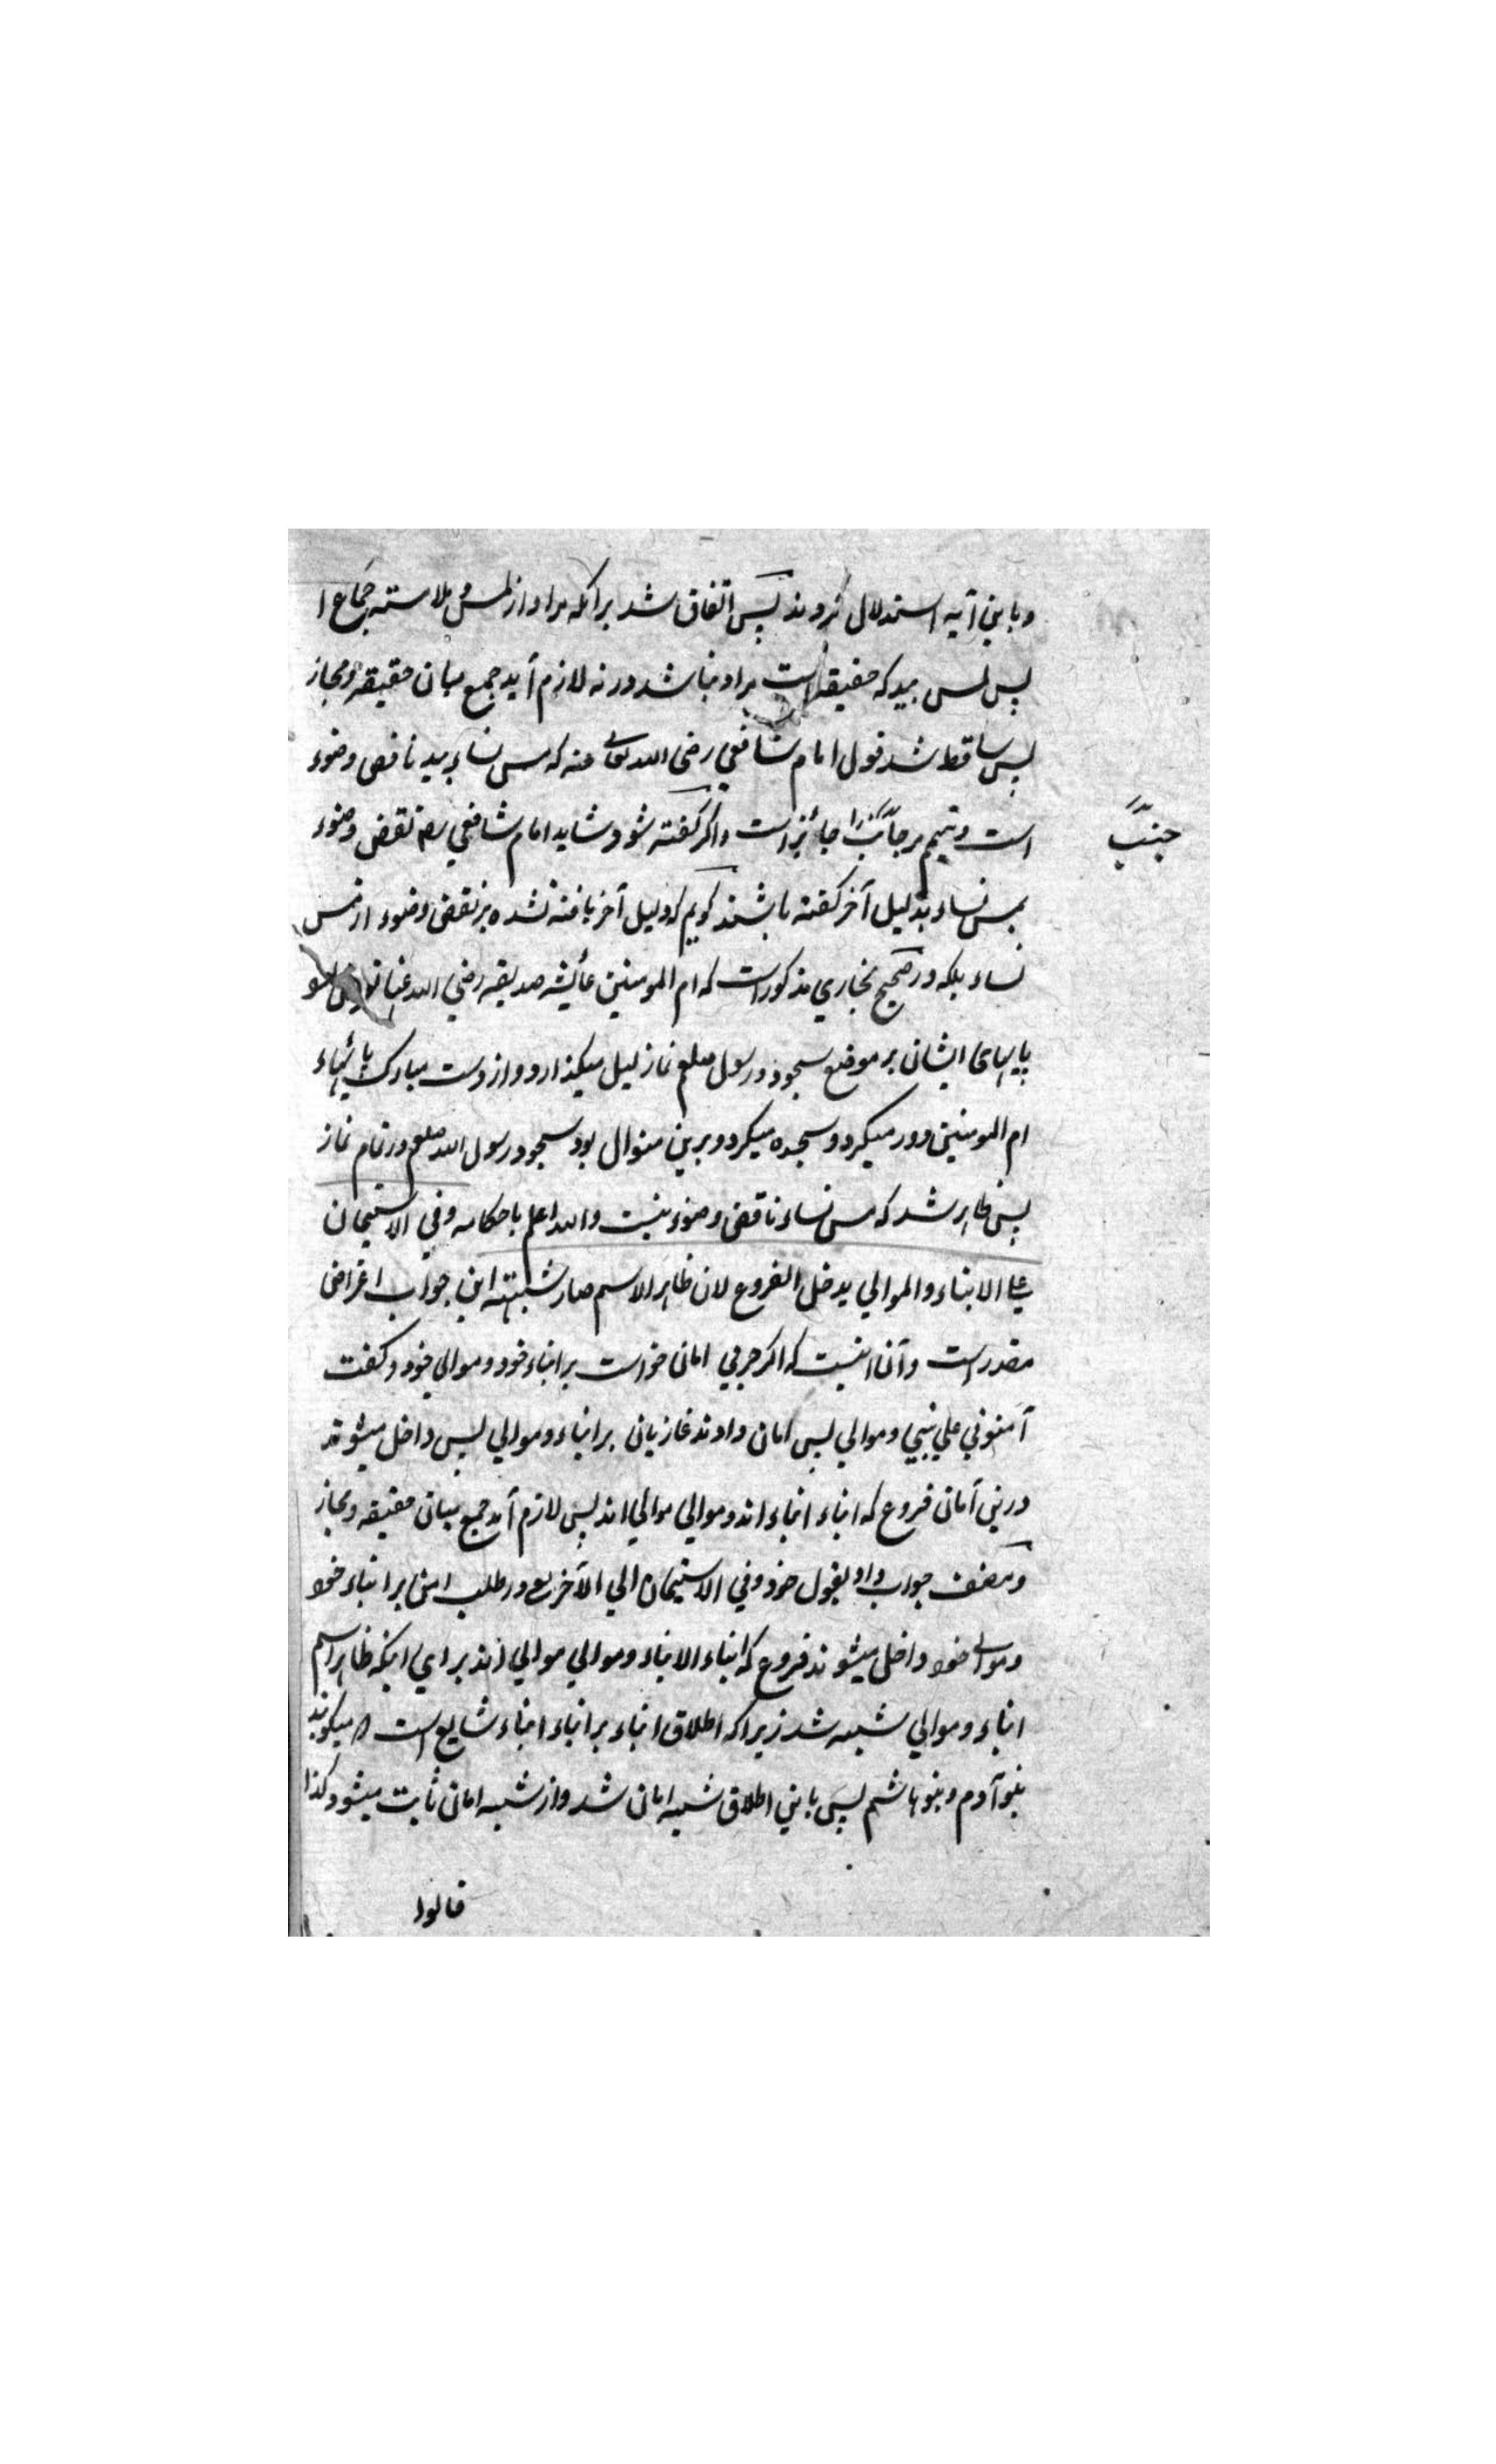 و باین آیه استدلال کردند پس اتفاق شد برآنکه مراد از لمس و ملامسته جماع ا
پس لمس بید که حقیقة است مراد نباشد ورنه لازم آید جمع میان حقیقة و مجاز
پس ساقط شد قول امام شافعی رضی الله تعالی عنه که مس نساء بید ناقض وضوء
است و تیمم مر جنب را جائز است و اگر گفته شود شاید امام شافعی رح نقض وضوء
جنب
بمس نساء بدلیل آخر گفته باشند گویم که دلیل آخر یافته نشده بر نقض وضوء از مس
نساء بلکه در صحیح بخاری مذکور است که ام المومنین عائشه صدیقه رضی الله عنها
پایهای ایشان بر موضع سجود و رسول صلعم نماز لیل میگذارد و از دست مبارک پایهاء
ام المومنین دور میکرد و سجده میکرد و برین منوال بود سجود رسول الله صلعم در تمام نماز
پس ظاهر شد که مس نساء ناقض وضوء نیست والله اعلم باحکامه وفي الاستیمان
علی الابناء والموالي یدخل الفروع لان ظاهر الاسم صار شبهته این جواب اعراض
مقدر است و آن اینست که اگر حربي امان خواست بر ابناء خود و موالي خود و گفت
آمنوني علي بني و موالي پس امان دادند غازیان بر ابناء و موالي پس داخل میشوند
درین امان فروع که ابناء ابناء اند و موالي موالي اند پس لازم آید جمع میان حقیقه و مجاز
و مصنف جواب داد بقول خود وفي الاستیمان الي الآخر یعـ در طلب امن بر ابناء خود
و موالی خود داخل میشوند فروع که ابناء الابناء و موالي موالي اند براي اینکه ظاهر اسم
ابناء و موالي شبهه شد زیرا که اطلاق ابناء بر ابناء ابناء شایع است میگویند
بنو آدم و بنو هاشم پس باین اطلاق شبهه امان شد و از شبهه امان ثابت میشود کذا
قالوا